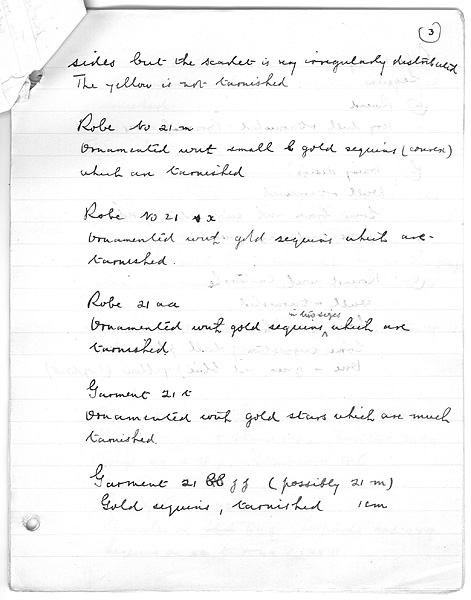 3
sides but the scarlet is very irregularly distributed
The yellow is not tarnished
Robe No 21 m
Ornamented with small gold sequins (convex)
which are tarnished
Robe No 21 x
Ornamented with gold sequins which are
tarnished.
Robe 21 aa
in two sizes
Ornamented with gold sequins ^ which are
tarnished.
Garment 21 t
Ornamented with gold stars which are much
tarnished
Garment 21 jj (possibly 21 m)
Gold sequins, tarnished 1cm